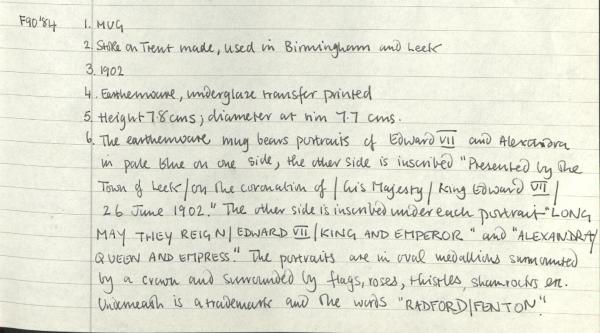 F90'84 1. MUG
2. Stoke on Trent made, used in Birmingham and Leek
3. 1902
4. Earthenware, underglaze transfer printed
5. Height 7.8cms; diameter at rim 7.7 cms.
6. The earthenware mug bears portraits of Edward VII and Alexandra
in pale blue on one side, the other side is inscribed "Presented by the
Town of Leek/on the coronation of/His Majesty/King Edward VII/
26 June 1902." The other side is inscribed under each portrait "LONG
MAY THEY REIGN/EDWARD VII/KING AND EMPEROR" and "ALEXANDRA/
QUEEN AND EMPRESS." The portraits are in oval medallions surmounted
by a crown and surrounded by flags, roses, thistles, shamrocks etc.
Underneath is a trademark and the words "RADFORD/FENTON".